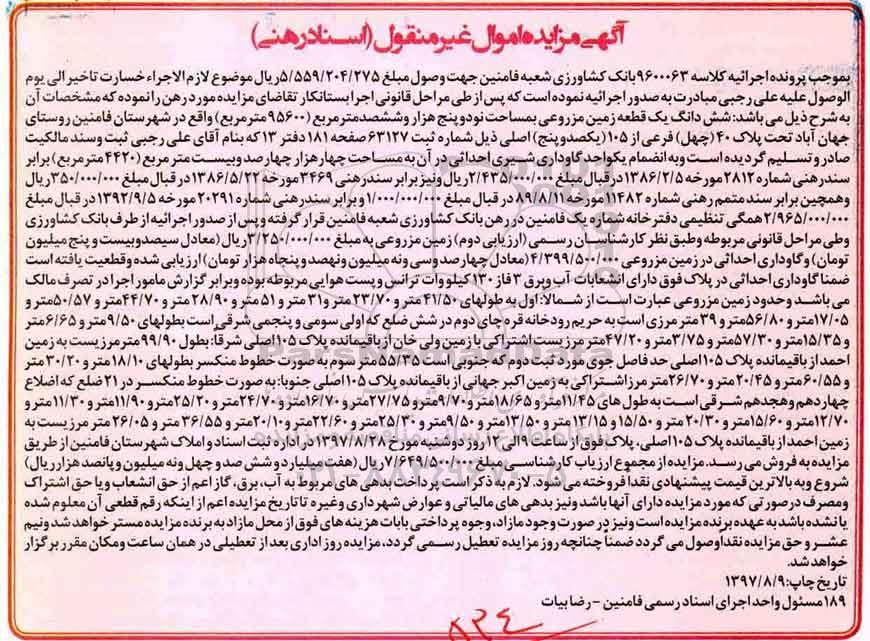 آگهی مزایده اموال غیر منقول (اسناد رهنی)
بموجب پرونده اجرائیه کلاسه ۹۶۰۰۰۶۳ بانک کشاورزی شعبه فامنین جهت وصول مبلغ ۵/۵۵۹/۲۰۴/۲۷۵ ریال موضوع لازم الاجراء خسارت تاخیر الی یوم
الوصول علیه علی رجبی مبادرت به صدور اجرائیه نموده است که پس از طی مراحل قانونی اجرا بستانکار تقاضای مزایده مورد رهن را نموده که مشخصات آن
به شرح ذیل می باشد: شش دانگ یک قطعه زمین مزروعی بمساحت نود و پنج هزار و ششصد متر مربع (۹۵۶۰۰ متر مربع) واقع در شهرستان فامنین روستای
جهان آباد تحت پلاک ۴۰ (چهل) فرعی از ۱۰۵ (یکصد و پنج) اصلی ذیل شماره ثبت ۶۳۱۲۷ صفحه ۱۸۱ دفتر ۱۳ که بنام آقای علی رجبی ثبت و سند مالکیت
صادر و تسلیم گردیده است و به انضمام یکواحد گاوداری شیری احداثی در آن به مساحت چهار هزار چهارصد و بیست متر مربع (۴۴۲۰ متر مربع) برابر
سند رهنی شماره ۲۸۱۲ مورخه ۱۳۸۶/۲/۵ در قبال مبلغ ۲/۴۳۵/۰۰۰/۰۰۰ ریال و نیز برابر سند رهنی ۳۴۶۹ مورخه ۱۳۸۶/۵/۲۲ در قبال مبلغ ۳۵۰/۰۰۰/۰۰۰ ریال
وهمچین برابر سند متمم رهنی شماره ۱۱۴۸۲ مورخه ۸۹/۸/۱۱ در قبال مبلغ ۱/۰۰۰/۰۰۰/۰۰۰ و برابر سند رهنی شماره ۲۰۲۹۱ مورخه ۱۳۹۲/۹/۵ در قبال مبلغ
۲/۹۶۵/۰۰۰/۰۰۰ همگی تنظیمی دفترخانه شماره یک فامنین در رهن بانک کشاورزی شعبه فامنین قرار گرفته و پس از صدور اجرائیه از طرف بانک کشاورزی
وطی مراحل قانونی مربوطه و طبق نظر کارشناسان رسمی (ارزیابی دوم) زمین مزروعی به مبلغ ۳/۲۵۰/۰۰۰/۰۰۰ ریال (معادل سیصد و بیست و پنج میلیون
تومان) و گاوداری احداثی در زمین مزروعی ۴/۳۹۹/۵۰۰/۰۰۰ (معادل چهارصد و سی و نه میلیون و نهصد و پنجاه هزار تومان) ارزیابی شده و قطعیت یافته است
ضمنا گاوداری احداثی در پلاک فوق دارای انشعابات آب و برق ۳ فاز ۱۳۰ کیلو وات ترانس و پست هوایی مربوطه بوده و برابر گزارش مامور اجرا در تصرف مالک
می باشد و حدود زمین مزروعی عبارت است از شمالا: اول به طولهای ۴۱/۵۰ متر و ۲۳/۷۰ متر و ۳۱ متر و ۵۱ متر و ۲۸/۹۰ متر و ۴۴/۷۰ متر و ۵۰/۵۷ متر و
۱۷/۰۵ متر و ۵۶/۸۰ متر و ۳۹ متر مرزی است به حریم رودخانه قره چای دوم در شش ضلع که اولی سومی و پنجمی شرقی است بطولهای ۹/۵۰ متر و ۶/۶۵ متر
و ۱۵/۳۵ متر و ۵۷/۳۰ متر و ۳/۷۵ متر و ۴۷/۲۰ متر مرزیست اشتراکی با زمین ولی خان از باقیمانده پلاک ۱۰۵ اصلی شرقاً: بطول ۹۹/۹۰ متر مرزیست به زمین
احمد از باقیمانده پلاک ۱۰۵ اصلی حد فاصل جوی مورد ثبت دوم که جنوبی است ۵۵/۳۵ متر سوم به صورت خطوط منکسر بطولهای ۱۸/۱۰ متر و ۲۰/۳۰ متر
و ۶۰/۵۵ متر و ۲۰/۴۵ متر و ۲۶/۷۰ متر مرز اشتراکی به زمین اکبر جهانی از باقیمانده پلاک ۱۰۵ اصلی جنوبا: به صورت خطوط منکسر در ۲۱ ضلع که اضلاع
چهاردهم و هجدهم شرقی است به طول های ۱۱/۴۵ متر و ۱۸/۶۵ متر و ۹/۷۰ متر و ۲۷/۷۵ متر و ۱۶/۷۰ متر و ۲۴/۷۰ متر و ۲۵/۲۰ متر و ۱۱/۹۰ متر و ۱۱/۳۰ متر و
۱۲/۷۰ متر و ۱۵/۶۰ متر و ۲۰/۳۰ متر و ۱۵/۵۰ متر و ۱۳/۱۵ متر و ۱۲/۵۰ متر و ۹/۵۰ متر و ۲۵/۳۰ متر و ۲۲/۶۰ متر و ۲۰/۱۰ متر و ۳۶/۵۵ متر و ۲۶/۰۵ متر مرزیست به
زمین احمد از باقیمانده پلاک ۱۰۵ اصلی، پلاک فوق از ساعت ۹ الی ۱۲ روز دوشنبه مورخ ۱۳۹۷/۸/۲۸ در اداره ثبت اسناد و املاک شهرستان فامنین از طریق
مزایده به فروش می رسد. مزایده از مجموع ارزیاب کارشناسی مبلغ ۷/۶۴۹/۵۰۰/۰۰۰ ریال (هفت میلیارد و شش صد و چهل و نه میلیون و پانصد هزار ریال)
شروع و به بالاترین قیمت پیشنهادی نقداً فروخته می شود. لازم به ذکر است پرداخت بدهی های مربوط به آب، برق، گاز اعم از حق انشعاب و یا حق اشتراک
و مصرف در صورتی که مورد مزایده دارای آنها باشد و نیز بدهی های مالیاتی و عوارض شهرداری و غیره تا تاریخ مزایده اعم از اینکه رقم قطعی آن معلوم شده
یا نشده باشد به عهده برنده مزایده است و نیز در صورت وجود مازاد، وجوه پرداختی بابات هزینه های فوق از محل مازاد به برنده مزایده مستر خواهد شد و نیم
عشر و حق مزایده نقداً وصول می گردد ضمناً چنانچه روز مزایده تعطیل رسمی گردد، مزایده روز اداری بعد از تعطیلی در همان ساعت و مکان مقرر برگزار
خواهد شد.
تاریخ چاپ: ۱۳۹۷/۸/۹
۱۸۹ مسئول واحد اجرای اسناد رسمی فامنین - رضا بیات
ParsNamadData